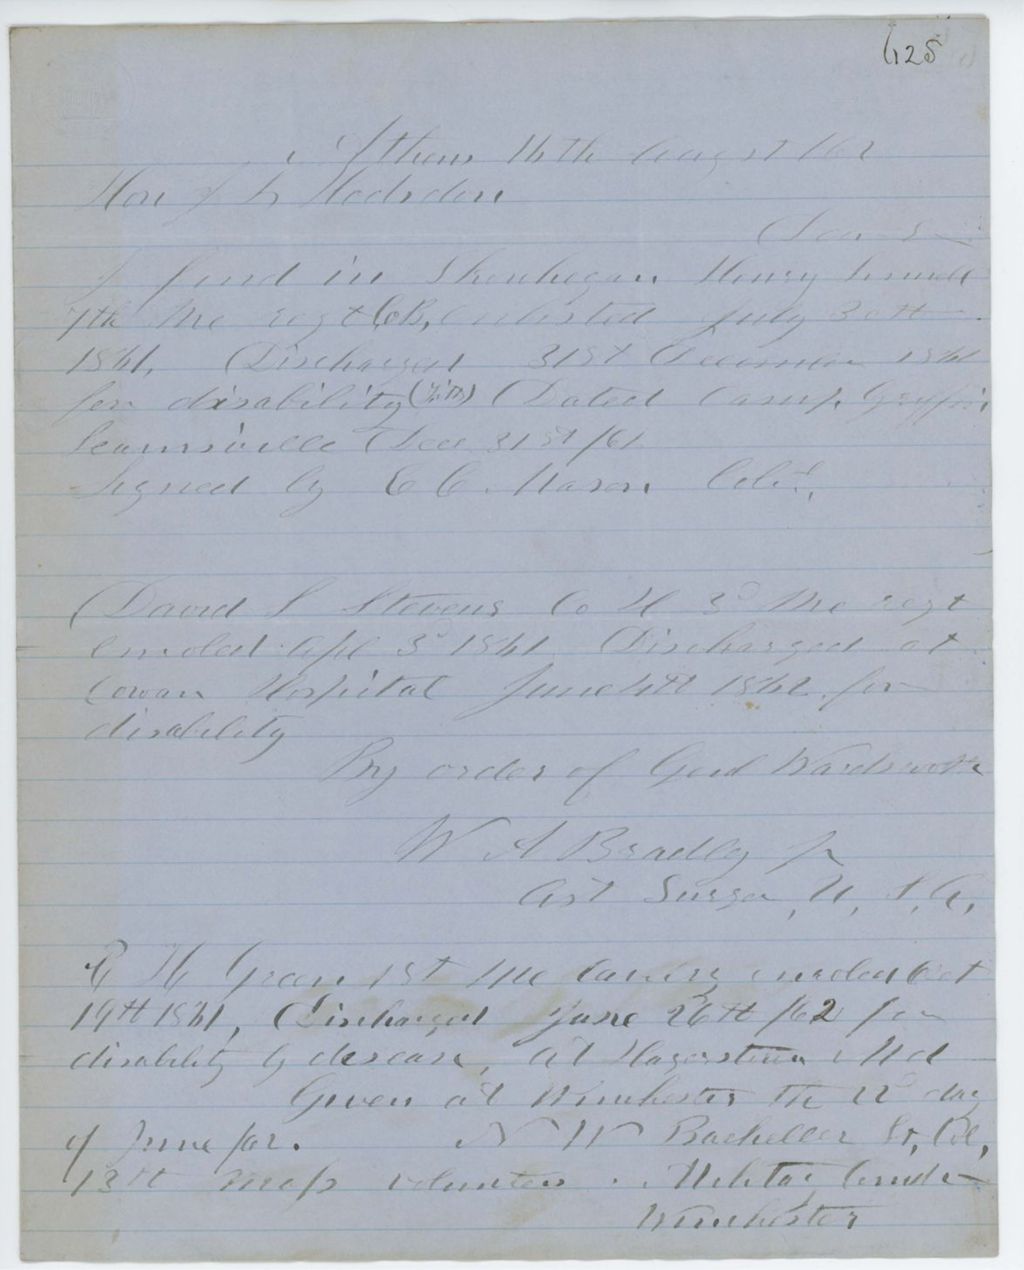 628
Athens 16th August /62
Hon J L Hodsdon
Dear Sir
I find in Skowhegan Henry
7th Me regt Co B, enlisted July 30th
1861, Discharged 31st December 1861
for disability (Fits) Dated Camp Griffin
Dec 31st /61
Signed by E C Mason Col.
David S Stevens Co H 3d Me regt
enroled 3d 1861 Discharged at
Cowan Hospital June 4th 1862 for
disability
By order of Genl Wardsworth
W A Bradley Jr
Ast Surgen, U, S, A,
C H Green 1st Me Cavalry enroled Oct
19th 1861, Discharged June 26th /62 for
disability by desease, at Hagerstown Md
Given at Winchester the 22d day
of June for. N W Bacheller Lt, Col,
13th Mass volunteers. Militai Comdr
Winchester